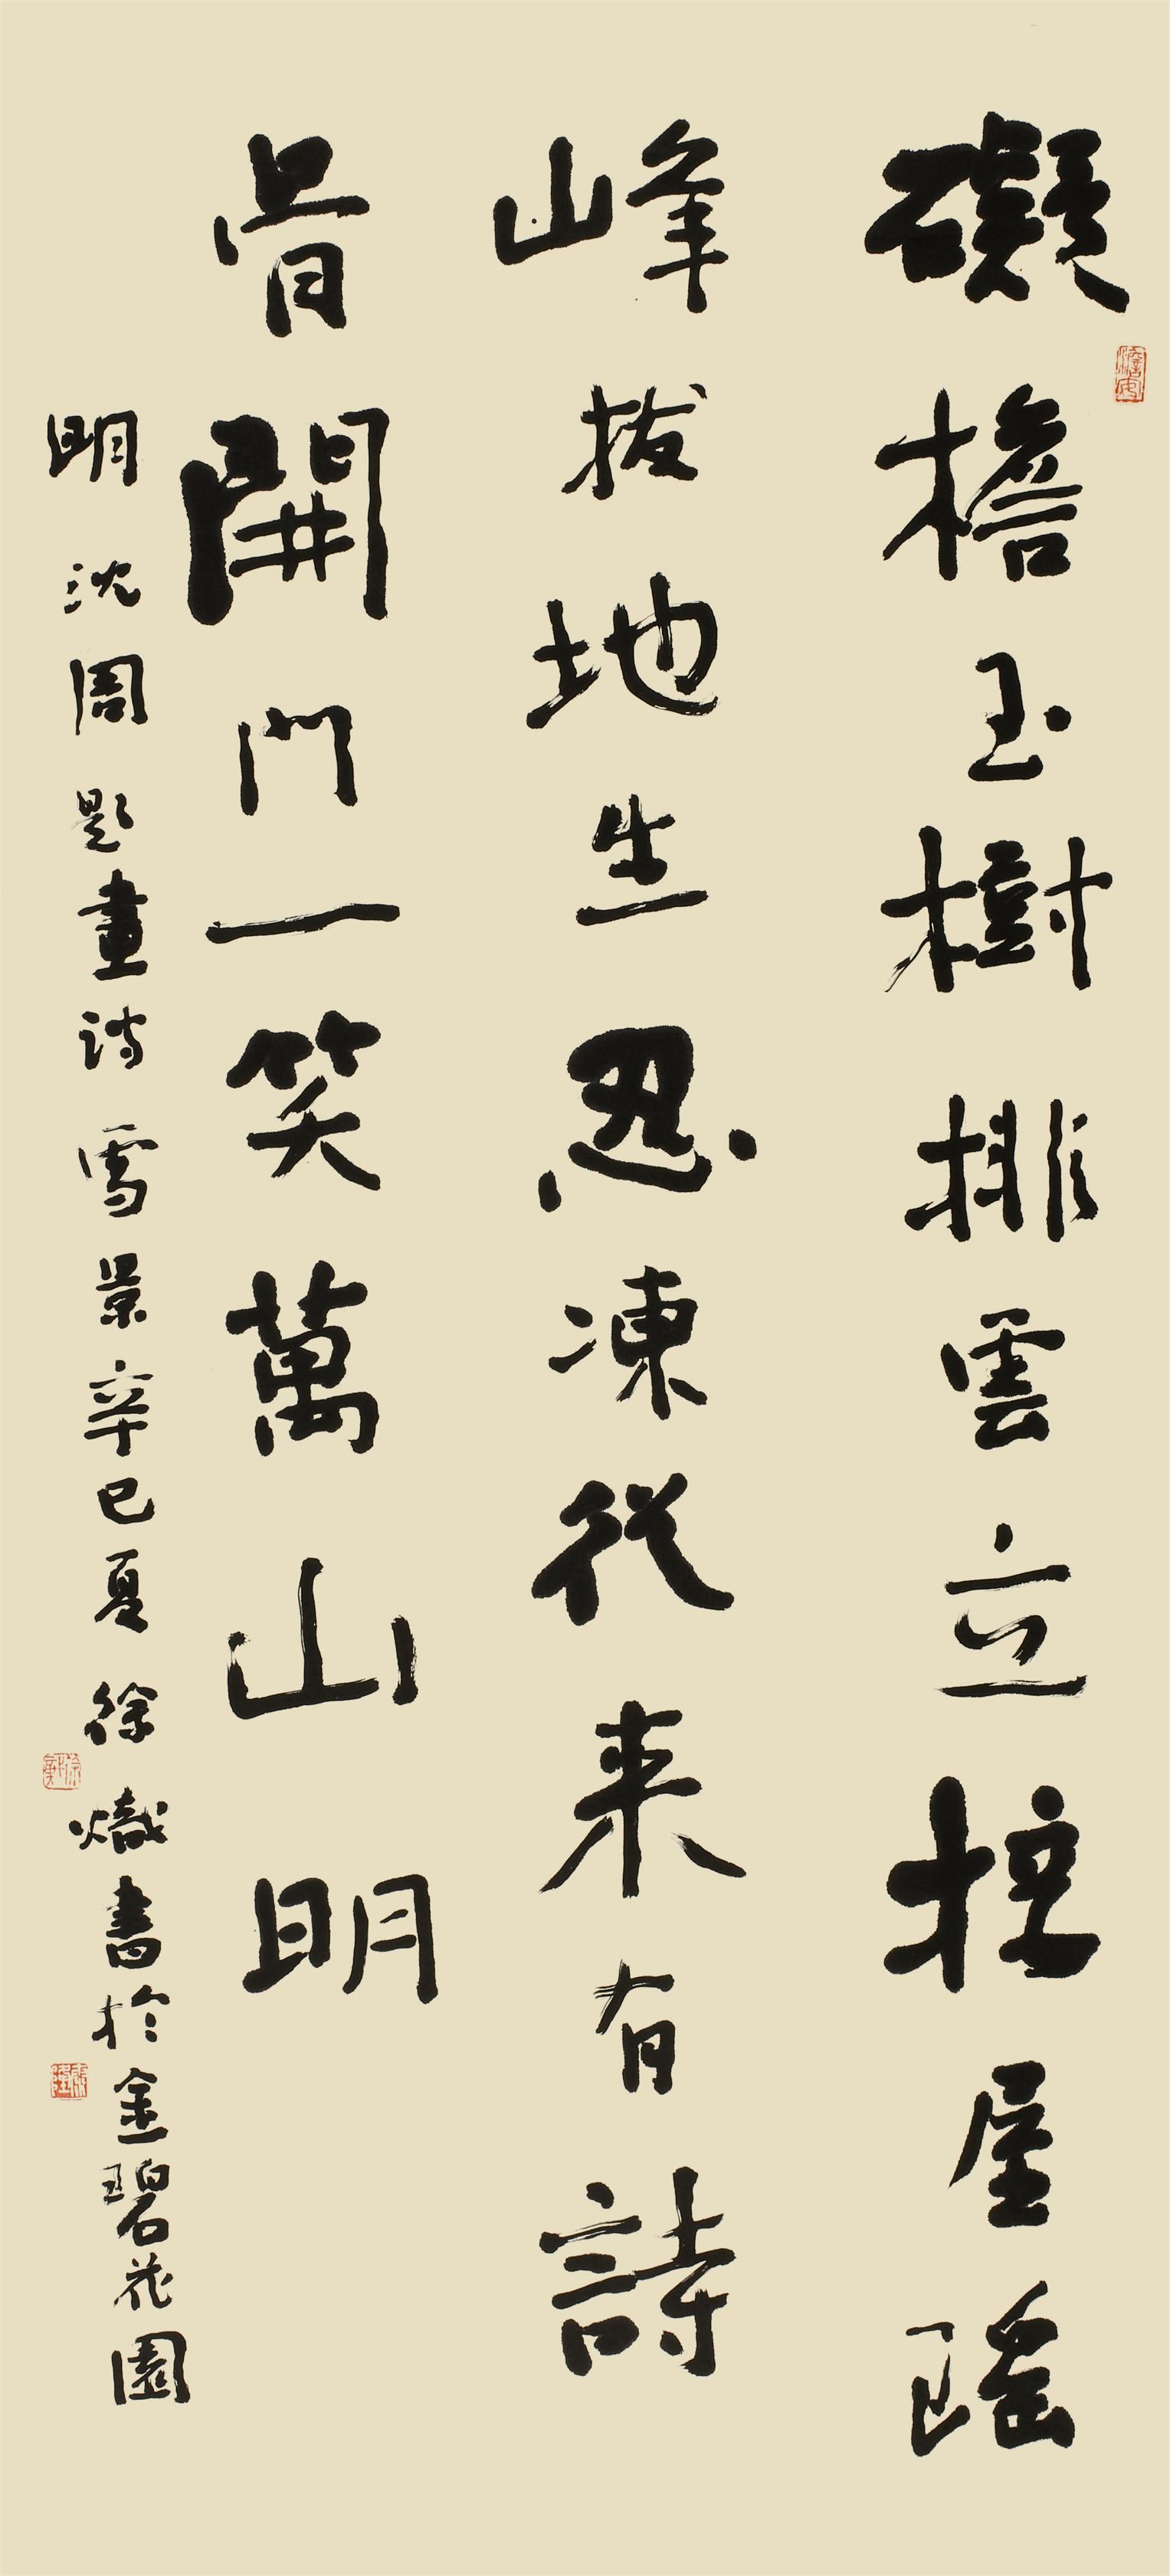 礙檐玉樹排雲立控屋瑤
峰拔地生忍凍從来有詩
骨開門一笑萬山明
明沈周題畫詩雪景辛巳夏徐熾書於金碧花園